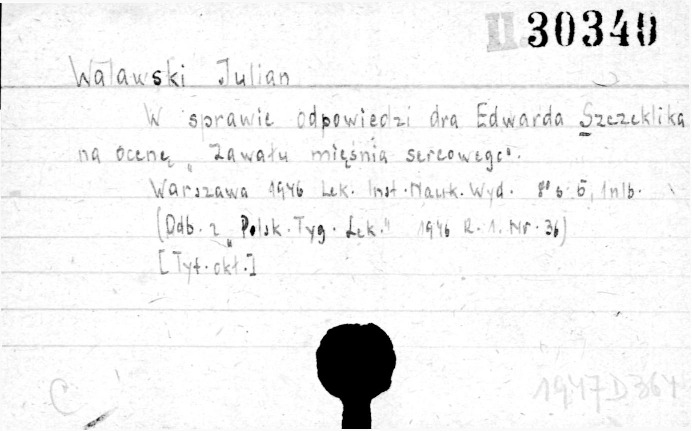 II 30340
Walawski Julian
W sprawie odpowiedzi dra Edwarda Szczeklika
na ocenę „Zawału mięśnia sercowego".
Warszawa 1946 Lek. Inst. Nauk. Wyd. 8° s. 5, 1 nlb.
(Odb. z „Polsk. Tyg. Lek." 1946 R. 1. Nr. 36)
[Tyt. okł.]
C 1947 D 364